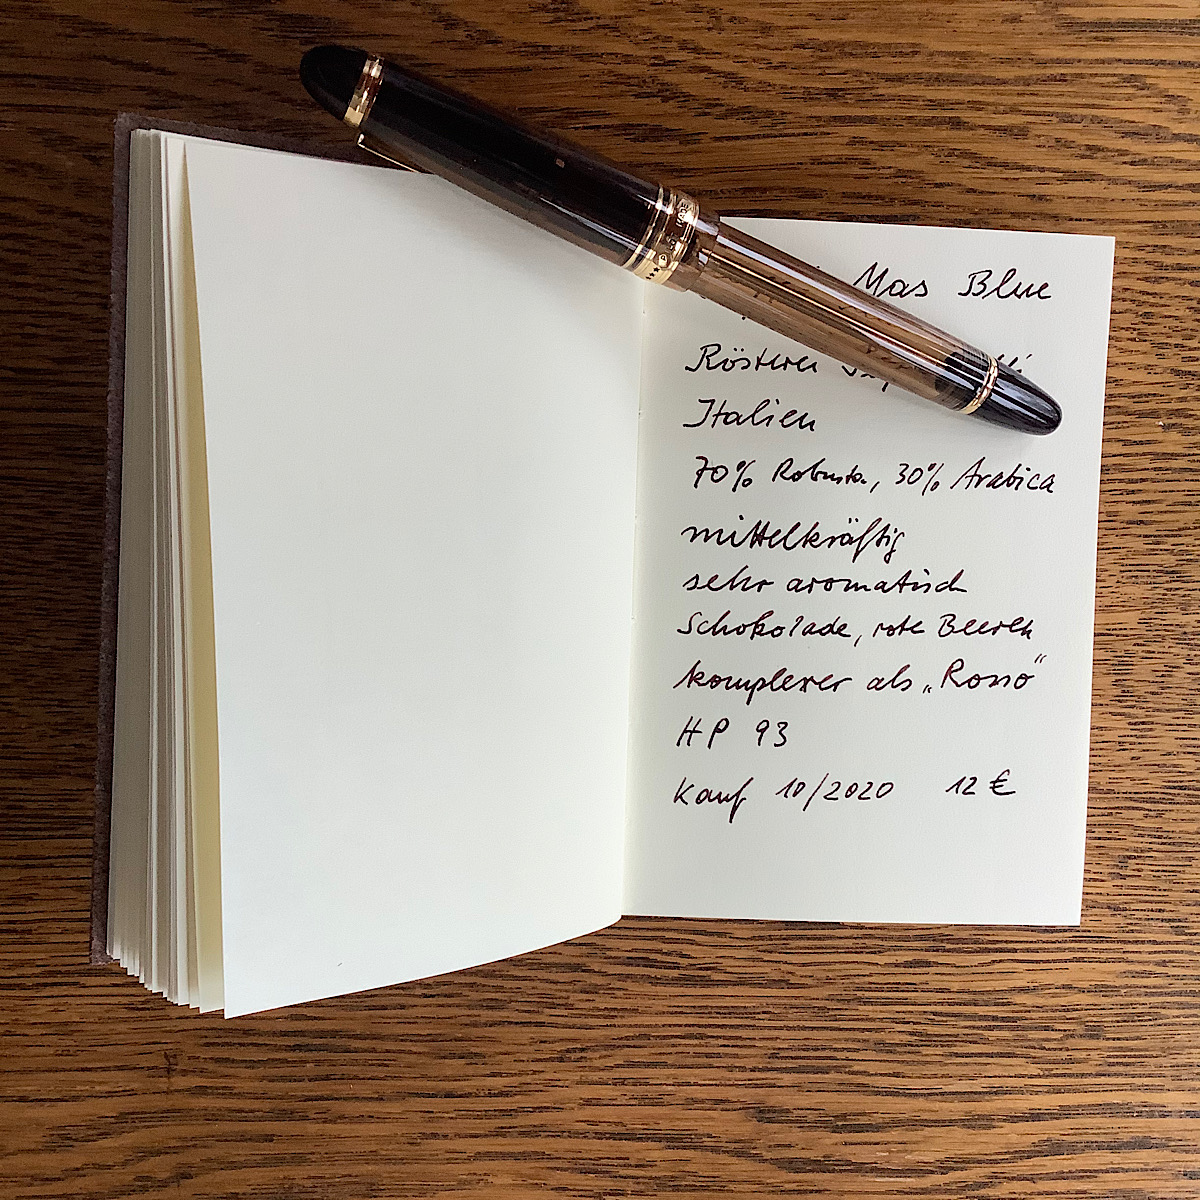 Mas Blue
Rösterei
Italien
70% Robusta, 30% Arabica
mittelkräftig
sehr aromatisch
Schokolade, rote Beeren
komplexer als „Rosso“
HP 93
Kauf 10/2020 12 €